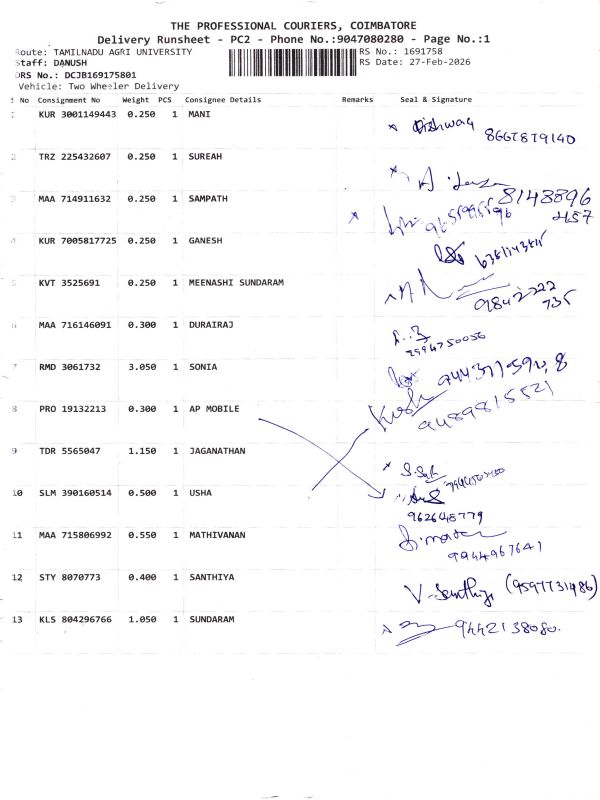 THE PROFESSIONAL COURIERS, COIMBATORE
Delivery Runsheet - PC2 - Phone No.:9047080280 - Page No.:1
Route: TAMILNADU AGRI UNIVERSITY RS No.: 1691758
Staff: DANUSH RS Date: 27-Feb-2026
DRS No.: DCJB169175801
Vehicle: Two Wheeler Delivery
S No Consignment No Weight PCS Consignee Details Remarks Seal & Signature
KUR 3001149443 0.250 1 MANI
8667879140
2 TRZ 225432607 0.250 1 SUREAH
8148896
457
3 MAA 714911632 0.250 1 SAMPATH
4 KUR 7005817725 0.250 1 GANESH
5 KVT 3525691 0.250 1 MEENASHI SUNDARAM
9842222
735
6 MAA 716146091 0.300 1 DURAIRAJ
7 RMD 3061732 3.050 1 SONIA
8 PRO 19132213 0.300 1 AP MOBILE
9489815521
9 TDR 5565047 1.150 1 JAGANATHAN
10 SLM 390160514 0.500 1 USHA
962648779
11 MAA 715806992 0.550 1 MATHIVANAN
9944967641
12 STY 8070773 0.400 1 SANTHIYA
(9597731486)
13 KLS 804296766 1.050 1 SUNDARAM
9442138080.